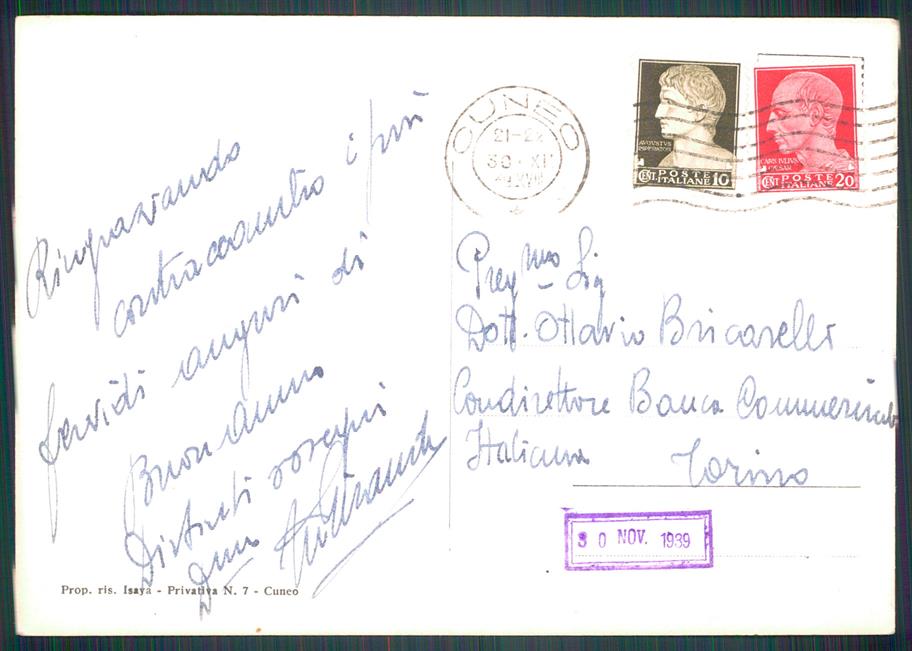 Ringraziando
contraccambio i più
fervidi auguri di
Buon Anno
Distinti ossequi
Prop. ris. Isaya - Privativa N. 7 - Cuneo
CUNEO
21-22
30·XI
AVGVSTVS
IMPERATOR
CENT. POSTE ITALIANE 10
CAIVS IVLIVS
CAESAR
CENT. POSTE ITALIANE 20
Preg mo Sig
Dott. Ottavio Bricarelli
Condirettore Banca Commerciale
Italiana Torino
30 NOV. 1939